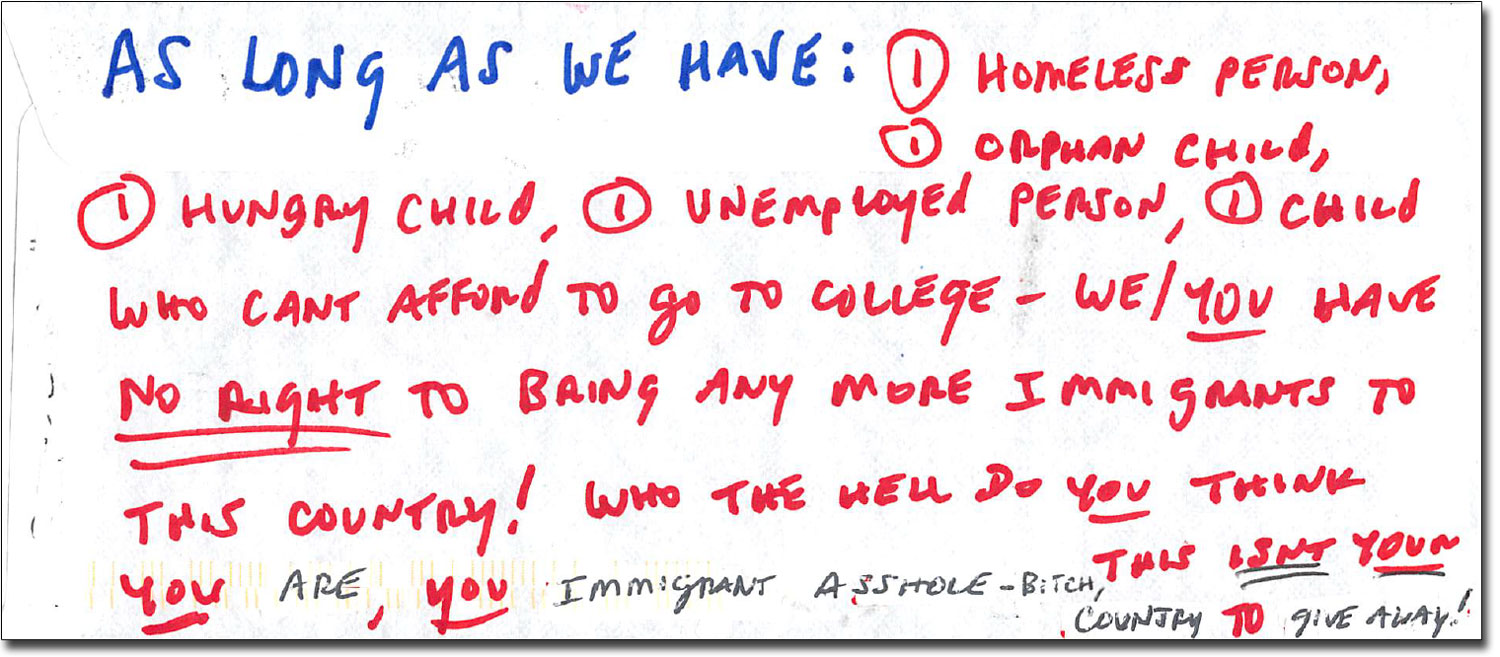 AS LONG AS WE HAVE: ① HOMELESS PERSON,
① ORPHAN CHILD,
① HUNGRY CHILD, ① UNEMPLOYED PERSON, ① CHILD
WHO CANT AFFORD TO GO TO COLLEGE - WE/YOU HAVE
NO RIGHT TO BRING ANY MORE IMMIGRANTS TO
THIS COUNTRY! WHO THE HELL DO YOU THINK
YOU ARE, YOU IMMIGRANT ASSHOLE-BITCH,
THIS ISNT YOUR
COUNTRY TO GIVE AWAY!